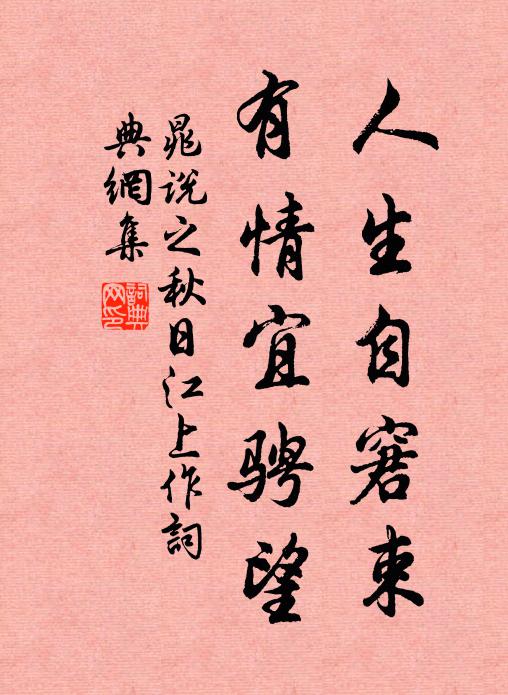 人生自窘束
有情宜騁望
晁說之秋日江上作詞
典網集
詞典網印